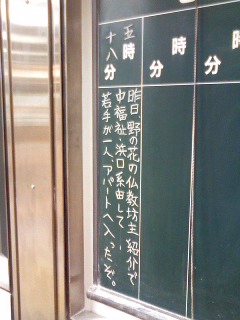 五時
十八分
昨日、野の花の仏教坊主紹介で
中福祉・浜口系由して、
若手が一人、アパートへ入ったぞ。
時
分
時
分